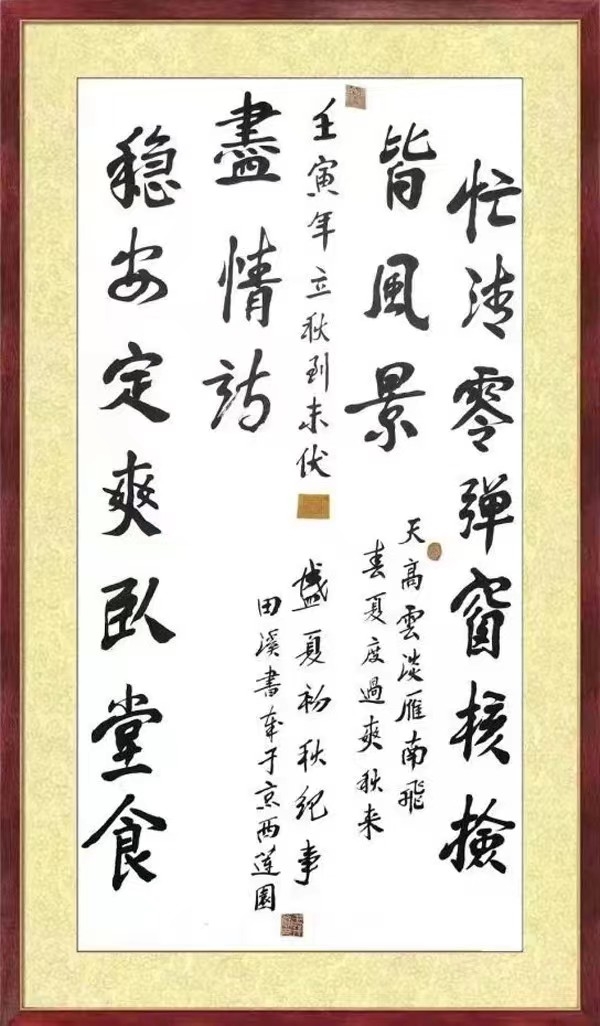 忙清零弹窗核檢
皆風景
天高雲淡雁南飛
春夏度過爽秋来
壬寅年立秋到末伏
盛夏初秋纪事
田溪書奉于京西蓮園
盡情訪
稳安定爽臥堂食